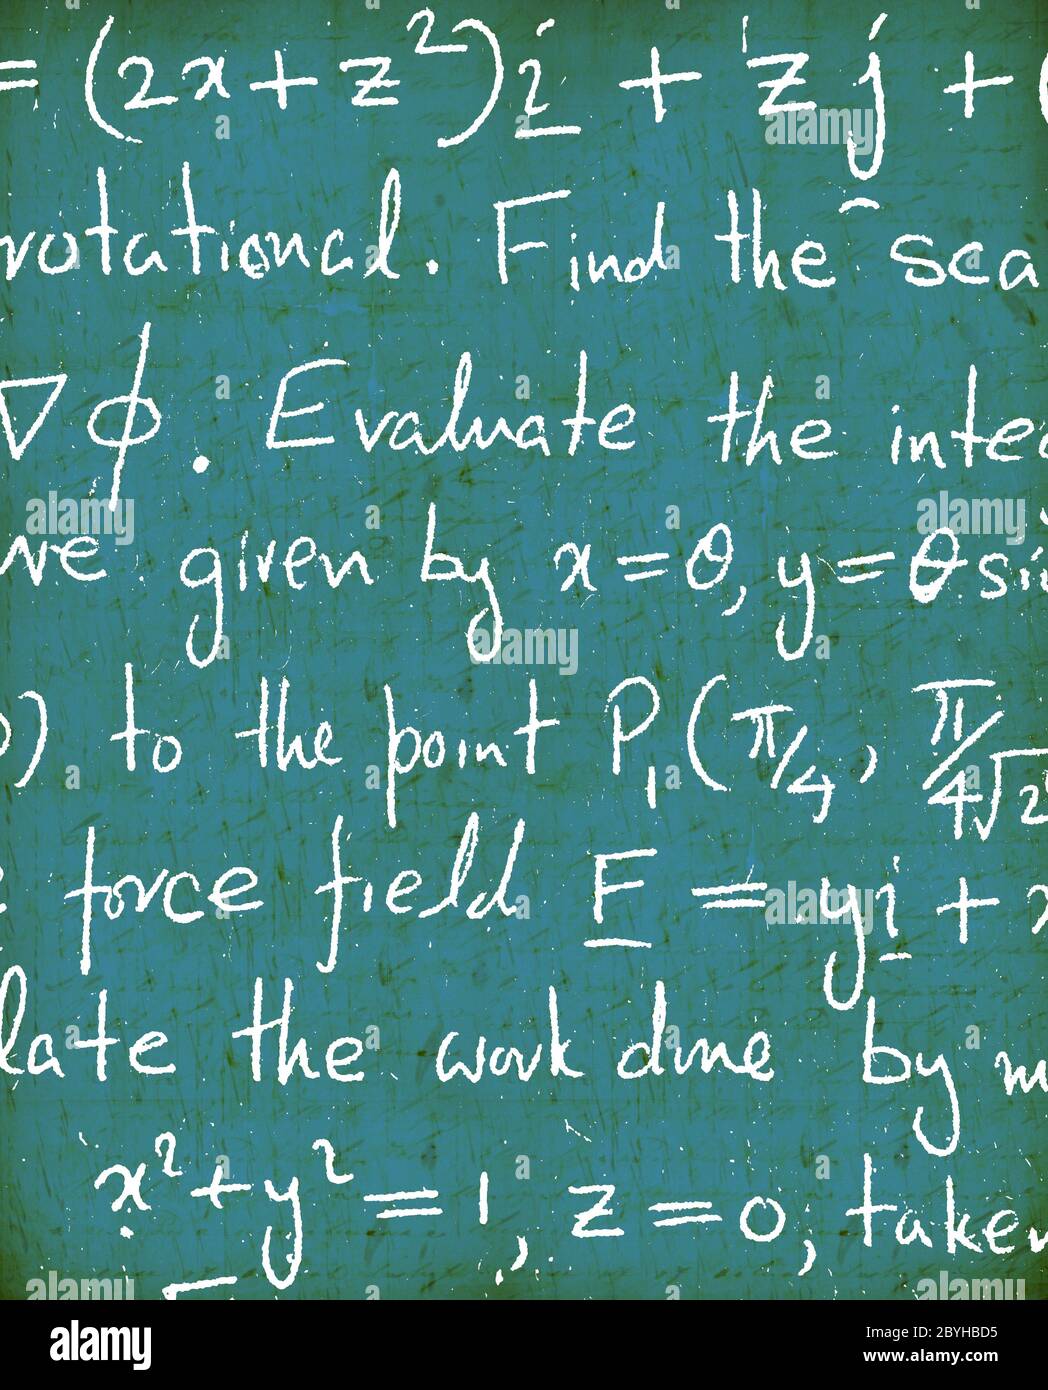 = (2x+z²)i + zj + (
rotational. Find the sca
∇φ. Evaluate the inte
ve given by x=θ, y=θ si
) to the point P₁(π/4, π/4√2
force field F = yi +
late the work done by m
x²+y²=1, z=0, taken
alamy
Image ID: 2BYHBD5
www.alamy.com